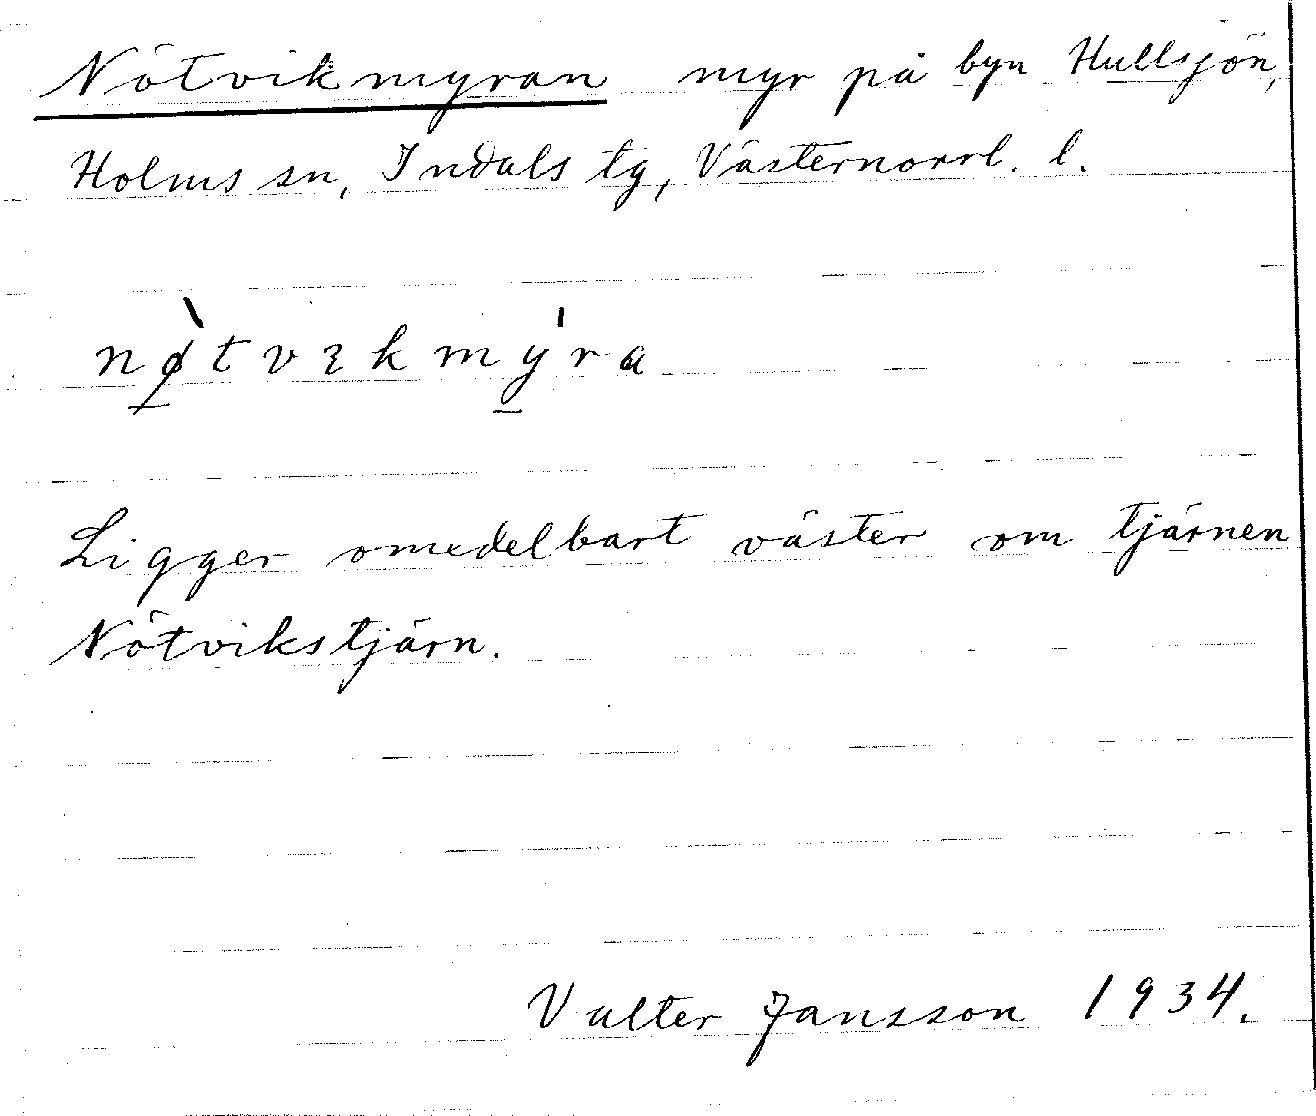 Nötvikmyran myr på byn Hullsjön,
Holms sn, Indals tg, Västernorrl. l.
nø̲̀tvɪkmy̲̍ra
Ligger omedelbart väster om tjärnen
Nötvikstjärn.
Valter Jansson 1934.